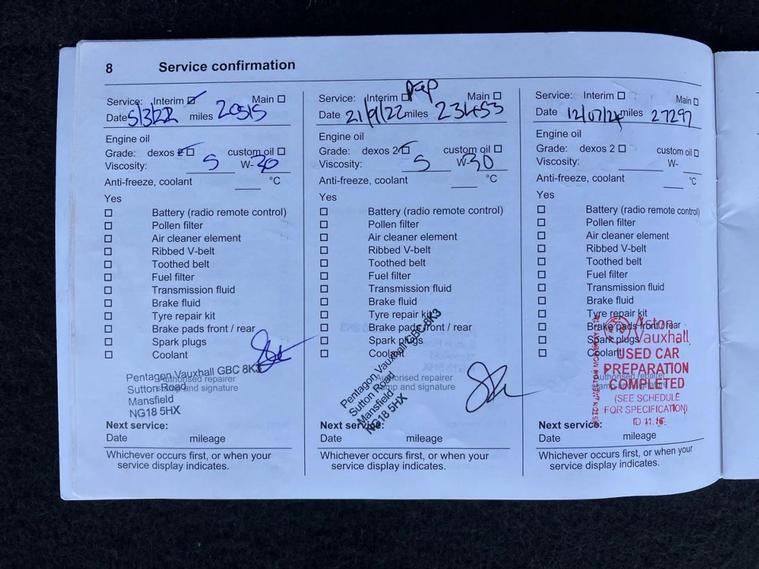 8 Service confirmation
Service: Interim Main
Date 5/3/22 miles 20515
Engine oil
Grade: dexos 2 custom oil
Viscosity: 5 W-30
Anti-freeze, coolant °C
Yes
Battery (radio remote control)
Pollen filter
Air cleaner element
Ribbed V-belt
Toothed belt
Fuel filter
Transmission fluid
Brake fluid
Tyre repair kit
Brake pads front / rear
Spark plugs
Coolant
Pentagon Vauxhall GBC 8K3
Sutton Road
Mansfield
NG18 5HX
Authorised repairer
stamp and signature
Next service:
Date mileage
Whichever occurs first, or when your
service display indicates.
Service: Interim Main
PREP
Date 21/9/22 miles 23453
Engine oil
Grade: dexos 2 custom oil
Viscosity: 5 W-30
Anti-freeze, coolant °C
Yes
Battery (radio remote control)
Pollen filter
Air cleaner element
Ribbed V-belt
Toothed belt
Fuel filter
Transmission fluid
Brake fluid
Tyre repair kit
Brake pads front / rear
Spark plugs
Coolant
Pentagon Vauxhall GBC 8K3
Sutton Road
Mansfield
NG18 5HX
Authorised repairer
stamp and signature
Next service:
Date mileage
Whichever occurs first, or when your
service display indicates.
Service: Interim Main
Date 12/07/24 miles 27297
Engine oil
Grade: dexos 2 custom oil
Viscosity: W-
Anti-freeze, coolant °C
Yes
Battery (radio remote control)
Pollen filter
Air cleaner element
Ribbed V-belt
Toothed belt
Fuel filter
Transmission fluid
Brake fluid
Tyre repair kit
Brake pads front / rear
Spark plugs
Coolant
Vauxhall
USED CAR
PREPARATION
COMPLETED
(SEE SCHEDULE
FOR SPECIFICATION)
Authorised repairer
stamp and signature
Next service:
Date mileage
Whichever occurs first, or when your
service display indicates.